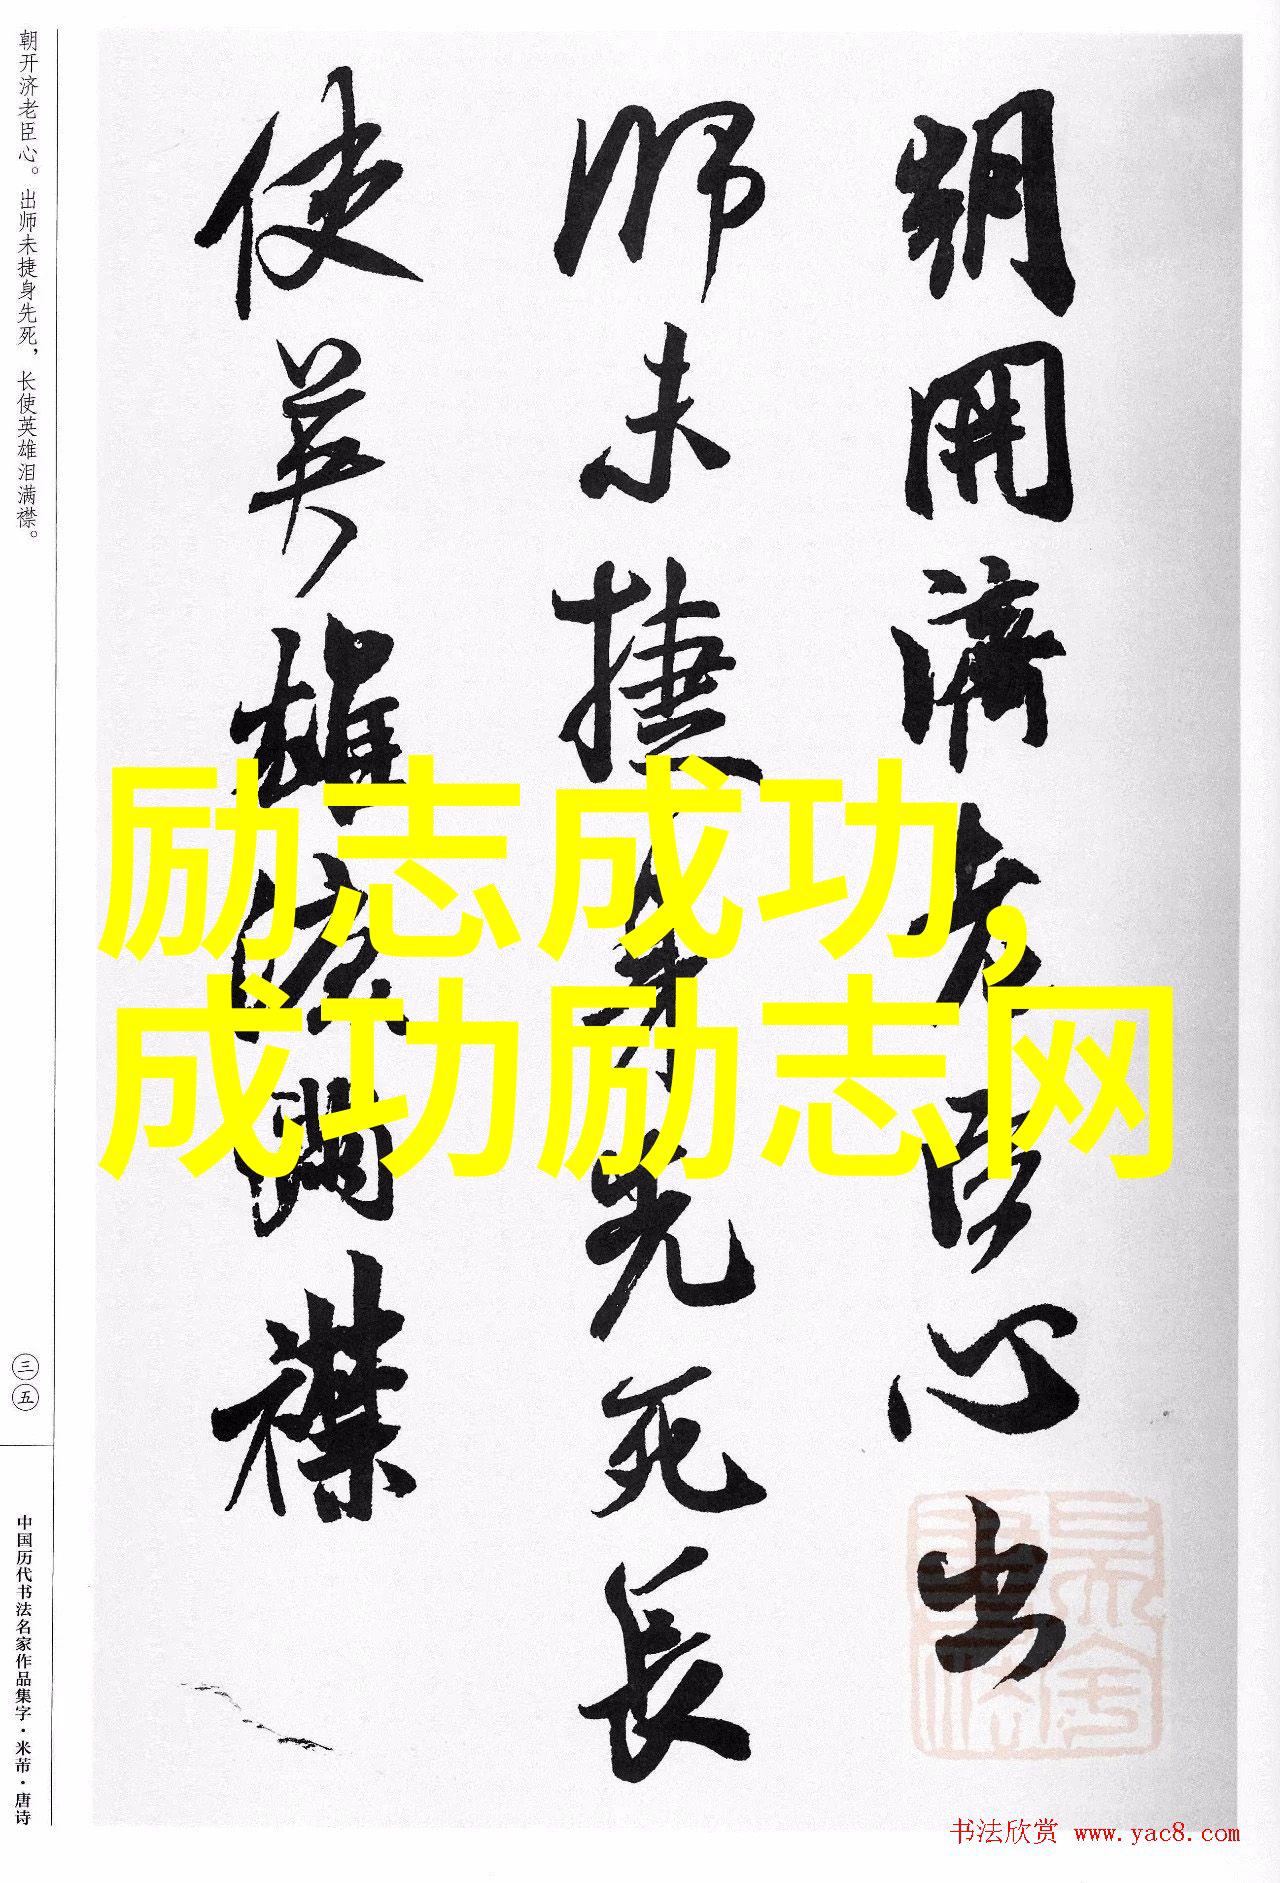 朝开济老臣心。出师未捷身先死，长使英雄泪满襟。
三五
中国历代书法名家作品集字·米芾·唐诗
朝開濟老臣心出
師未捷身先死長
使英雄淚滿襟
励志成功,
成功励志网
书法欣赏 www.yac8.com